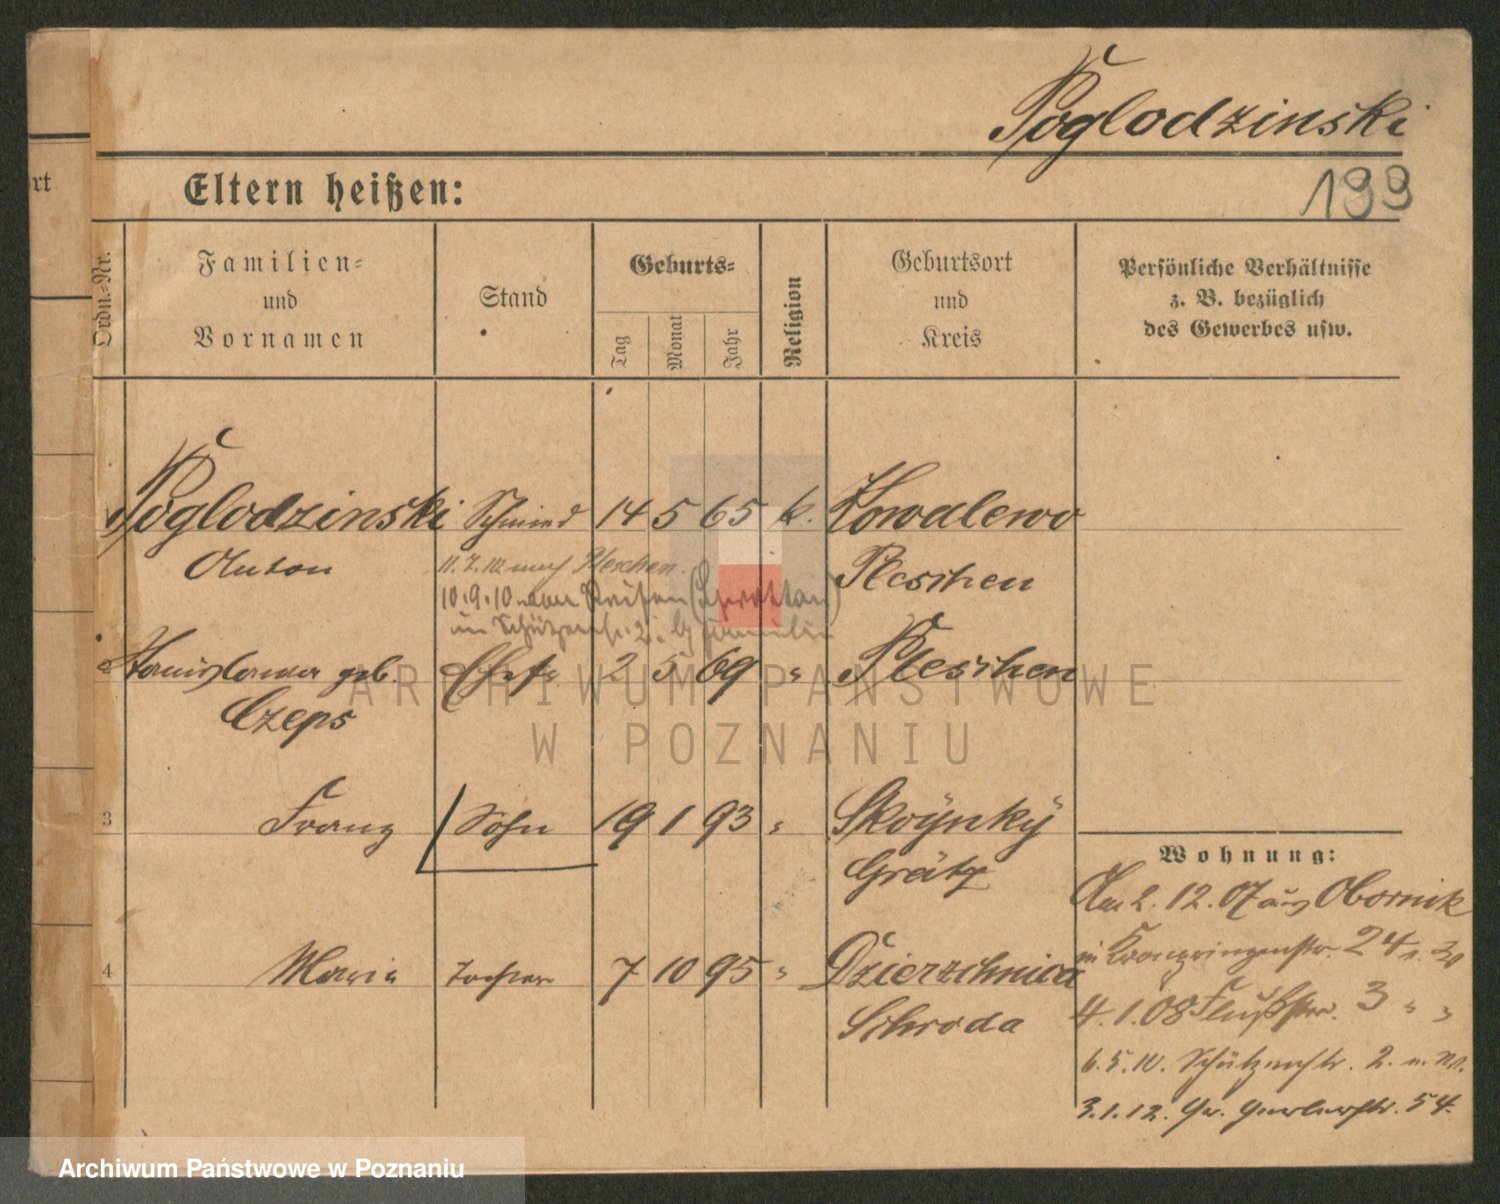 Poglodzinski
199
rt
Eltern heißen:
Ordn.-Nr.
Familien-
und
Vornamen
Stand
Geburts-
Tag
Monat
Jahr
Religion
Geburtsort
und
Kreis
Persönliche Verhältnisse
z. B. bezüglich
des Gewerbes usw.
Poglodzinski Schmied 14 5 65 k. Kowalewo
Anton Pleschen
11.7.10 nach Pleschen.
10.9.10 von
Stanislawa geb. Ehefr 2 5 69 " Pleschen
Czeps
3 Franz Sohn 19 1 93 "
Grätz
4 Maria Tochter 7 10 95 " Dzierzchnica
Schroda
Wohnung:
Am 2.12.07 aus Obornik
24
4.1.08 Flußstr. 3 " "
6.5.10. Schützenstr. 2.
3.1.12. Gr. Gerberstr. 54.
ARCHIWUM PAŃSTWOWE
W POZNANIU
Archiwum Państwowe w Poznaniu